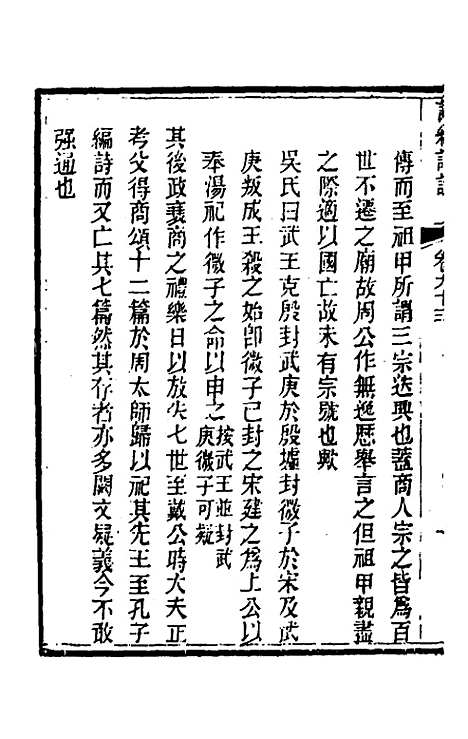 傳而至祖甲所謂三宗迭興也蓋商人宗之皆爲百
世不遷之廟故周公作無逸歷舉言之但祖甲親盡
之際適以國亡故未有宗號也歟
吳氏曰武王克殷封武庚於殷墟封微子於宋及武
庚叛成王殺之始卽微子已封之宋建之爲上公以
奉湯祀作微子之命以申之按武王並封武
庚微子可疑
其後政衰商之禮樂日以放失七世至戴公時大夫正
考父得商頌十二篇於周太師歸以祀其先王至孔子
編詩而又亡其七篇然其存者亦多闕文疑義今不敢
强通也